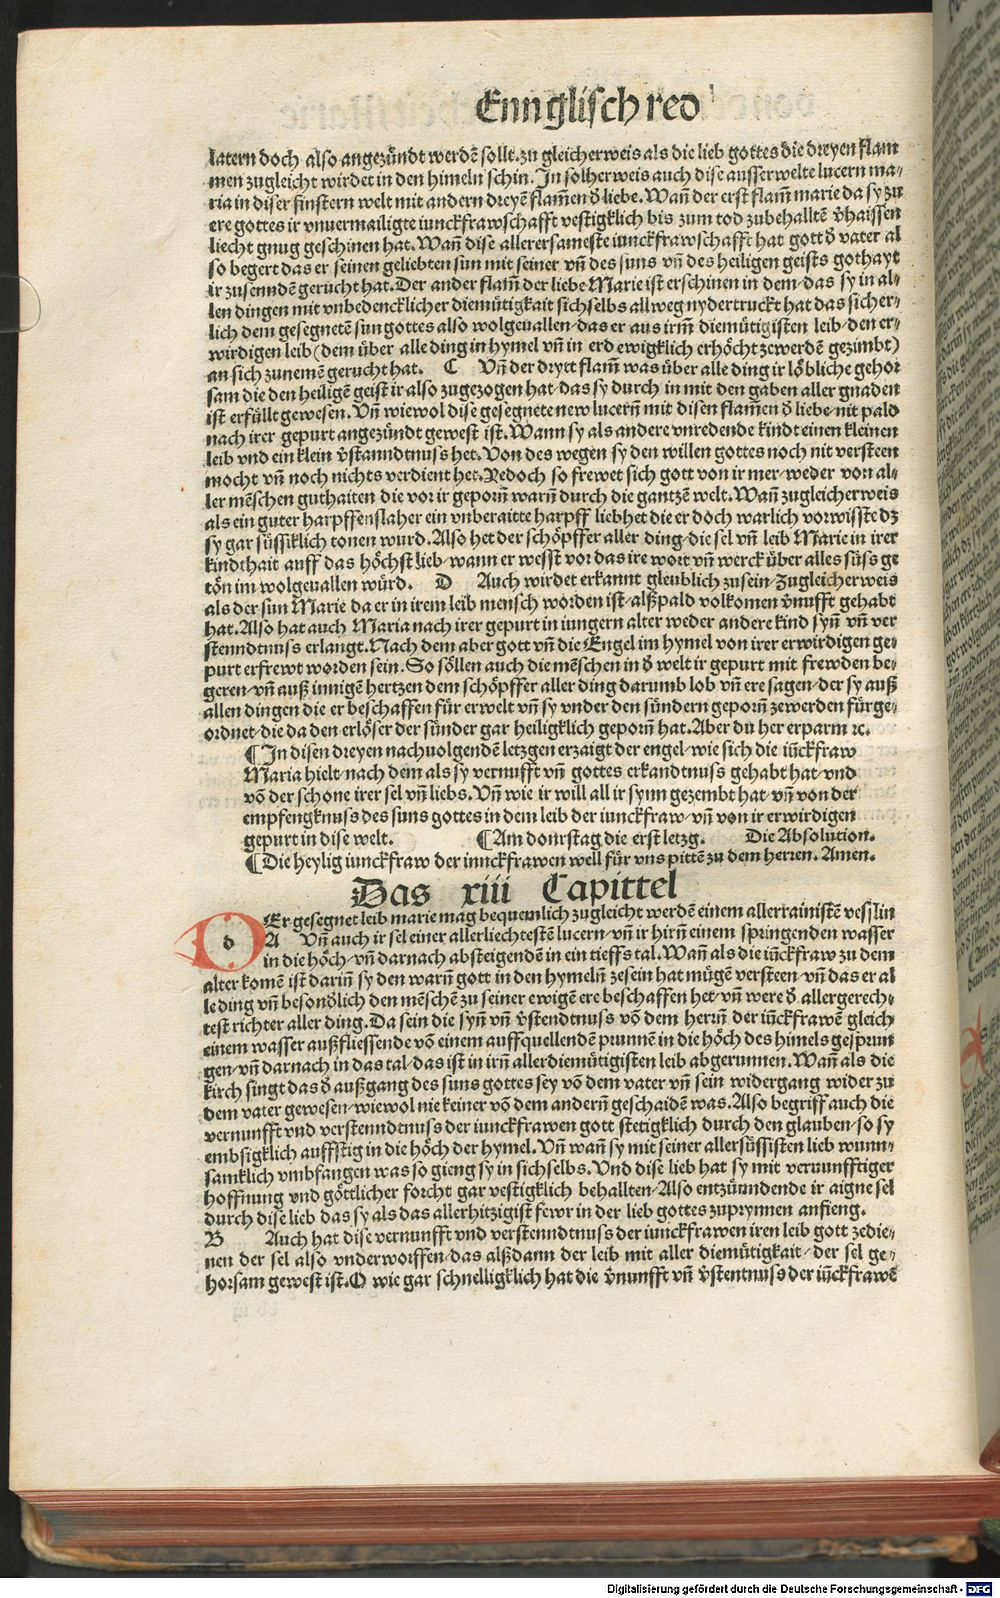 Ennglisch red
latern doch also angezündt werdē sollt. zu gleicherweis als die lieb gottes die dreyen flam
men zugleicht wirdet in den himeln schin. In solherweis auch dise ausserwelte lucern ma⸗
ria in diser finstern welt mit andern dreyē flam̄en ð liebe. Wan̄ der erst flam̄ marie da sy zu
ere gottes ir vnuermailigte iunckfrawschafft vestigklich bis zum tod zubehalltē v̄haissen
liecht gnug geschinen hat. Wan̄ dise allerersameste iunckfrawschafft hat gott ð vater al
so begert das er seinen geliebten sun mit seiner vn̄ des suns vn̄ des heiligen geists gothayt
ir zusennden gerucht hat. Der ander flam̄ der liebe Marie ist erschinen in dem/das sy in al⸗
len dingen mit vnbedencklicher diemütigkait sich selbs allweg nydertruckt hat das sicher⸗
lich dem gesegnetē sun gottes also wolgeuallen/das er aus irm̄ diemütigisten leib/den er⸗
wirdigen leib (dem über alle ding in hymel vn̄ in erd ewigklich erhöcht zewerdē gezimbt)
an sich zunemē gerucht hat. C Vn̄ der drytt flam̄ was über alle ding ir löbliche gehor
sam die den heiligē geist ir also zugezogen hat/das sy durch in mit den gaben aller gnaden
ist erfüllt gewesen. Vn̄ wiewol dise gesegnete new lucern̄ mit disen flam̄en ð liebe/nit pald
nach irer gepurt angezündt gewest ist. Wann sy als andere vnredende kindt einen kleinen
leib vnd ein klein v̄stanndtnuss het. Von des wegen sy den willen gottes noch nit versteen
mocht vn̄ noch nichts verdient het. Yedoch so frewet sich gott von ir mer/weder von al⸗
ler mēschen guthaiten die vor ir geporn̄ warn̄ durch die gantzē welt. Wan̄ zugleicherweis
als ein guter harpffenslaher ein vnberaitte harpff lieb het die er doch warlich vorwisste dz
sy gar süssiklich tonen wurd. Also het der schöpffer aller ding/die sel vn̄ leib Marie in irer
kindthait auff das höchst lieb/wann er wesst vor das ire wort vn̄ werck über alles süss ge
tön im wolgeuallen würd. D Auch wirdet erkannt gleublich zu sein/Zugleicherweis
als der sun Marie da er in irem leib mensch worden ist/alßpald volkomen v̄nufft gehabt
hat. Also hat auch Maria nach irer gepurt in iungern alter weder andere kind syn̄ vn̄ ver
stenndtnuss erlangt. Nach dem aber gott vn̄ die Engel im hymel von irer erwirdigen ge⸗
purt erfrewt worden sein. So söllen auch die mēschen in ð welt ir gepurt mit frewden be⸗
geren/vn̄ auß innigē hertzen dem schöpffer aller ding darumb lob vn̄ ere sagen/der sy auß
allen dingen die er beschaffen für erwelt vn̄ sy vnder den sündern geporn̄ zewerden fürge⸗
ordnet/die da den erlöser der sünder gar heiligklich geporn̄ hat. Aber du her erparm ꝛc.
¶ In disen dreyen nachuolgendē letzgen erzaigt der engel/wie sich die iūckfraw
Maria hielt/nach dem als sy vernufft vn̄ gottes erkandtnuss gehabt hat/vnd
vō der schone irer sel vn̄ liebs. Vn̄ wie ir will all ir synn gezembt hat/vn̄ von der
empfengknuss des suns gottes in dem leib der iunckfraw/vn̄ von ir erwirdigen
gepurt in dise welt. ¶ Am donrstag die erst letzg. Die Absolution.
¶ Die heylig iunckfraw der iunckfrawen well für vns pittē zu dem herren. Amen.
Das xiii Capittel
d
Er gesegnet leib marie mag bequemlich zugleicht werdē einem allerrainistē vesslin
A Vn̄ auch ir sel einer allerliechtestē lucern/vn̄ ir hirn̄ einem springenden wasser
in die höch/vn̄ darnach absteigendē in ein tieffs tal. Wan̄ als die iūckfraw zu dem
alter komē ist darin̄ sy den warn̄ gott in den hymeln̄ zesein hat mügē versteen/vn̄ das er al
le ding vn̄ besonðlich den mēschē zu seiner ewigē ere beschaffen het/vn̄ were ð allergerech⸗
test richter aller ding. Da sein die syn̄ vn̄ v̄stendtnuss vō dem herin̄ der iūckfrawē gleich
einem wasser außfliessende vō einem auffquellendē prunnē in die höch des himels gesprun
gen/vn̄ darnach in das tal/das ist in irn̄ allerdiemütigisten leib abgerunnen. Wan̄ als die
kirch singt das ð außgang des suns gottes sey vō dem vater vn̄ sein widergang wider zu
dem vater gewesen/wiewol nie keiner vō dem andern̄ geschaidē was. Also begriff auch die
vernunfft vnd verstenndtnuss der iunckfrawen gott stetigklich durch den glauben/so sy
embsigklich auffstig in die höch der hymel. Vn̄ wan̄ sy mit seiner allersüssisten lieb wunn⸗
samklich vmbfangen was so gieng sy in sich selbs. Vnd dise lieb hat sy mit vernunfftiger
hoffnung vnd göttlicher forcht gar vestigklich behallten/Also entzünndende ir aigne sel
durch dise lieb das sy als das allerhitzigist fewr in der lieb gottes zuprynnen anfieng.
B Auch hat dise vernunfft vnd verstenndtnuss der iunckfrawen iren leib gott zedie⸗
nen der sel also vnderworffen/das alßdann der leib mit aller diemütigkait/der sel ge⸗
horsam gewest ist. O wie gar schnelligklich hat die v̄nunfft vn̄ v̄stentnuss der iūckfrawē
Digitalisierung gefördert durch die Deutsche Forschungsgemeinschaft - DFG